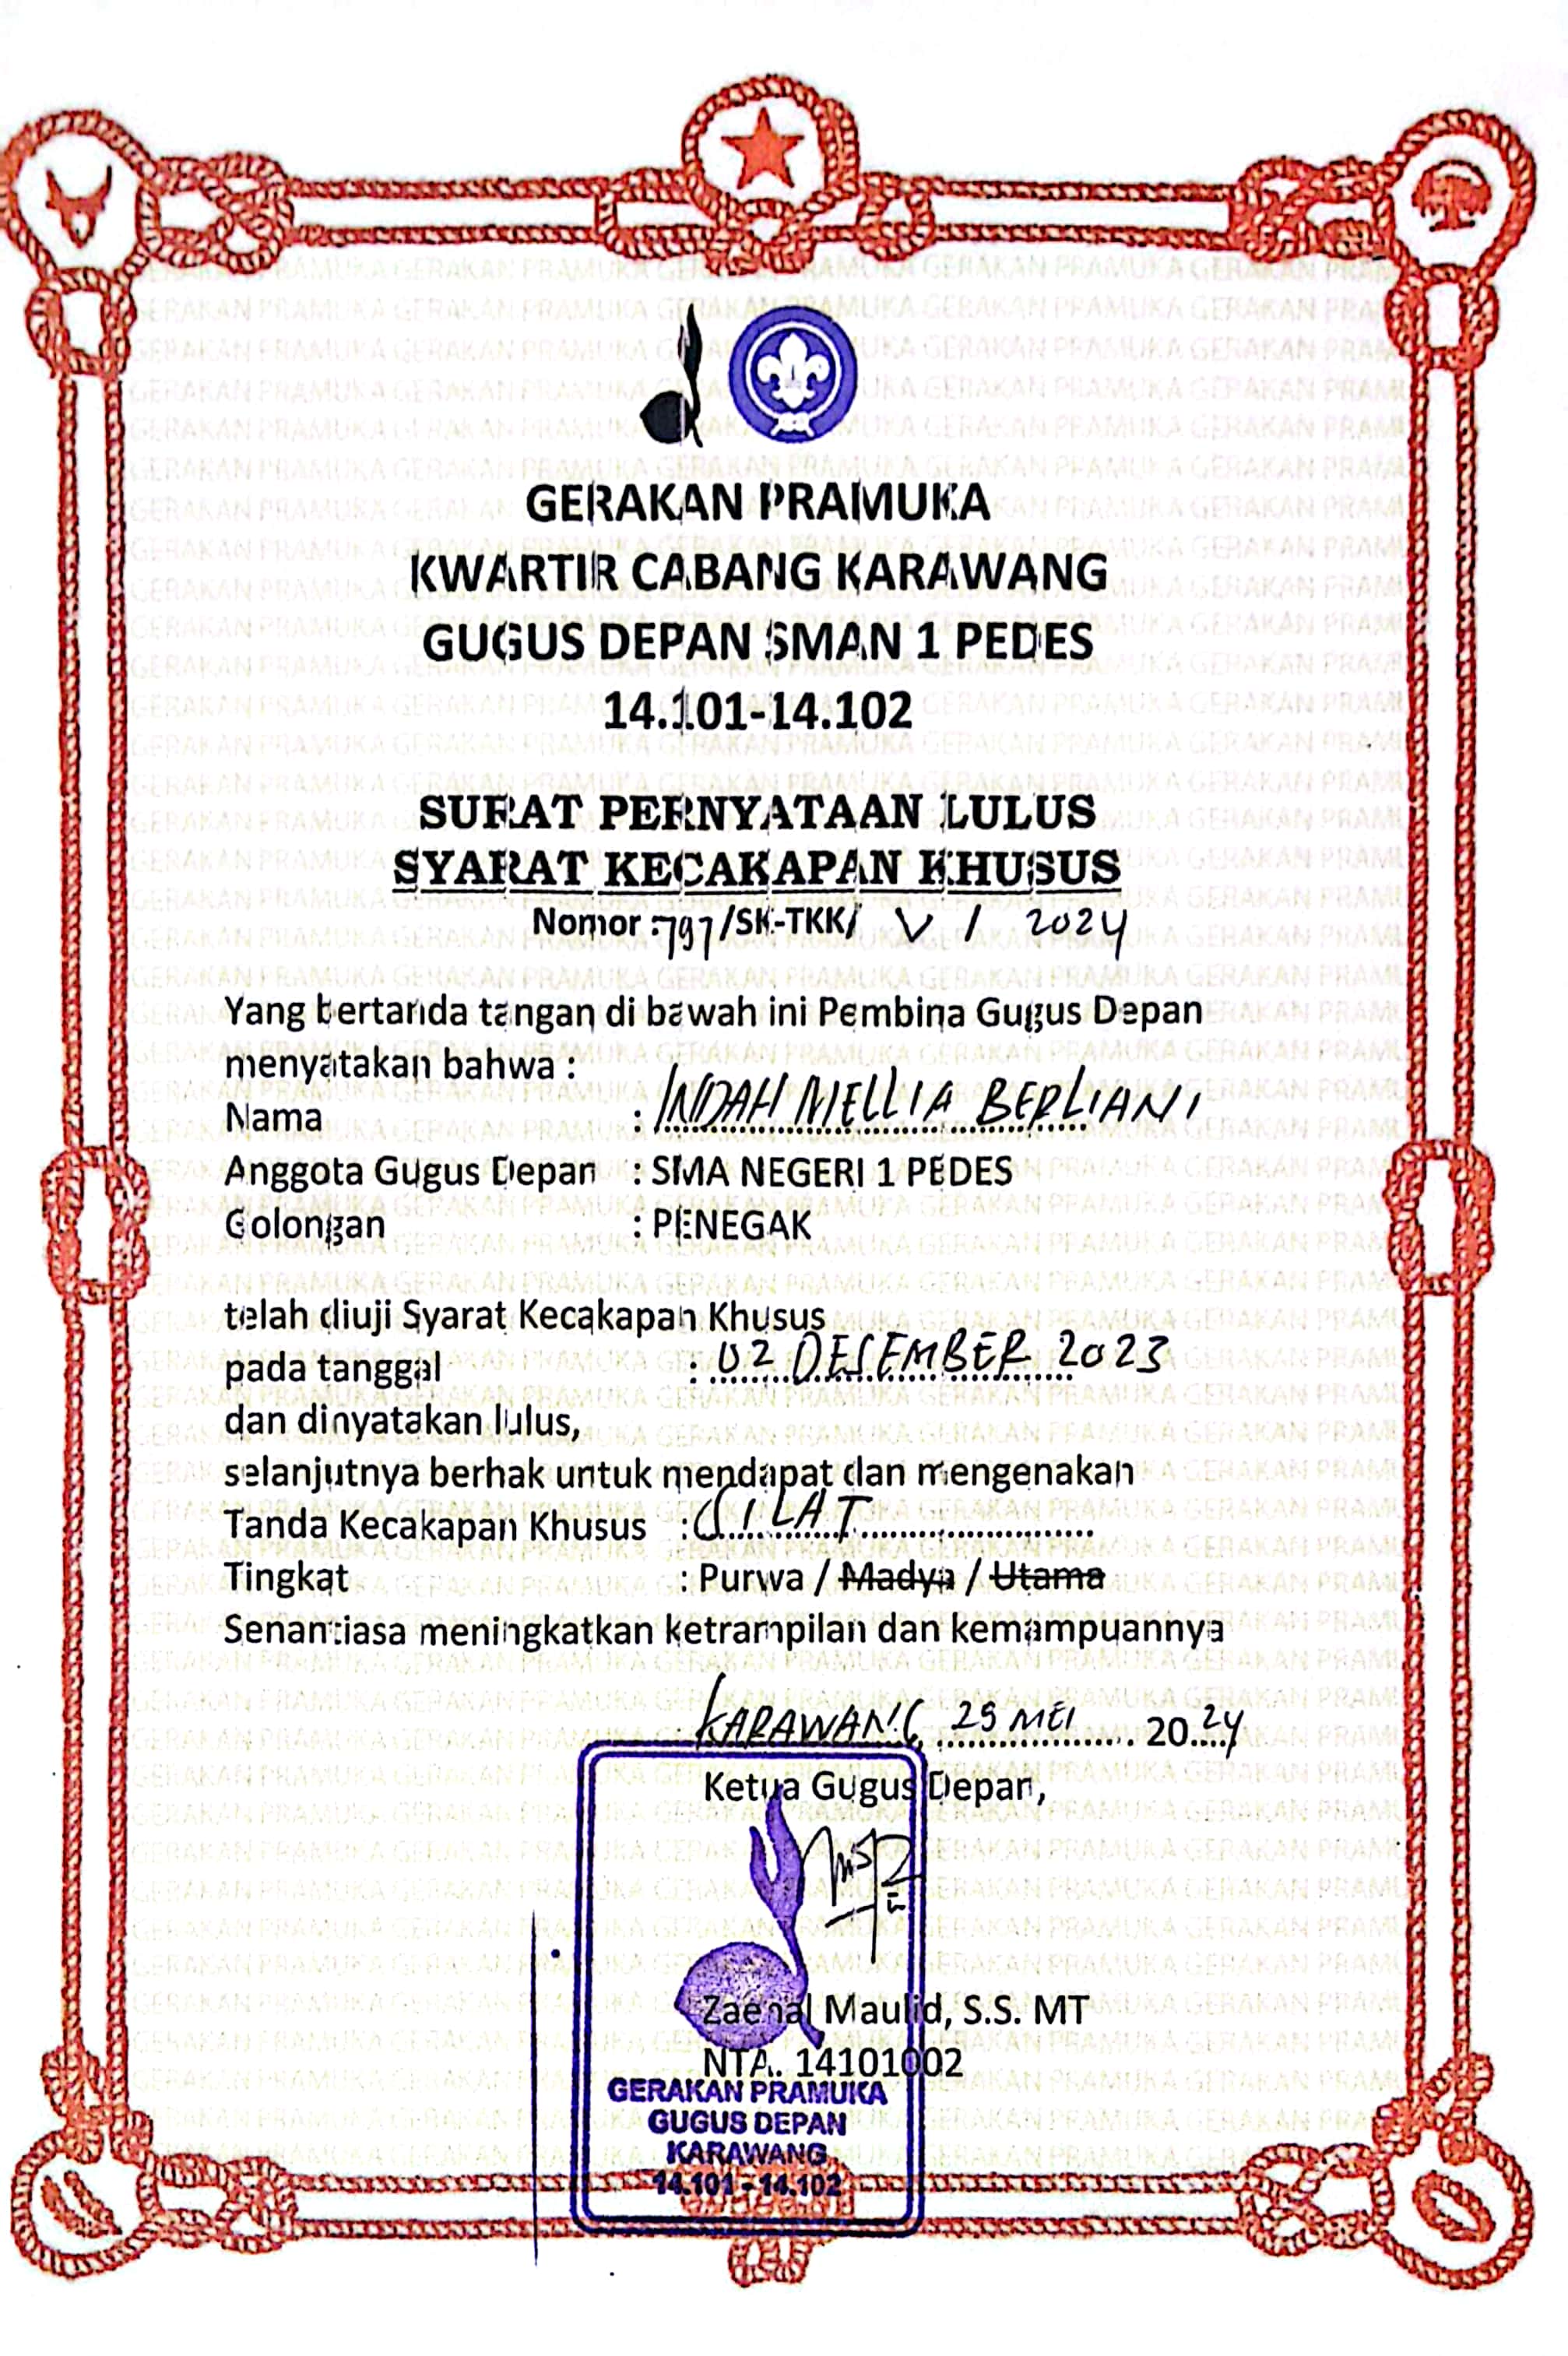 GERAKAN PRAMUKA
KWARTIR CABANG KARAWANG
GUGUS DEPAN SMAN 1 PEDES
14.101-14.102
SURAT PERNYATAAN LULUS
SYARAT KECAKAPAN KHUSUS
Nomor : 797/SK-TKK/ V / 2024
Yang bertanda tangan di bawah ini Pembina Gugus Depan
menyatakan bahwa :
Nama : INDAH MELLIA BERLIANI
Anggota Gugus Depan : SMA NEGERI 1 PEDES
Golongan : PENEGAK
telah diuji Syarat Kecakapan Khusus
pada tanggal : 02 DESEMBER 2023
dan dinyatakan lulus,
selanjutnya berhak untuk mendapat dan mengenakan
Tanda Kecakapan Khusus : SILAT
Tingkat : Purwa / Madya / Utama
Senantiasa meningkatkan ketrampilan dan kemampuannya
KARAWANG 25 MEI 2024
Ketua Gugus Depan,
Zaenal Maulid, S.S. MT
NTA. 14101002
GERAKAN PRAMUKA
GUGUS DEPAN
KARAWANG
14.101 - 14.102